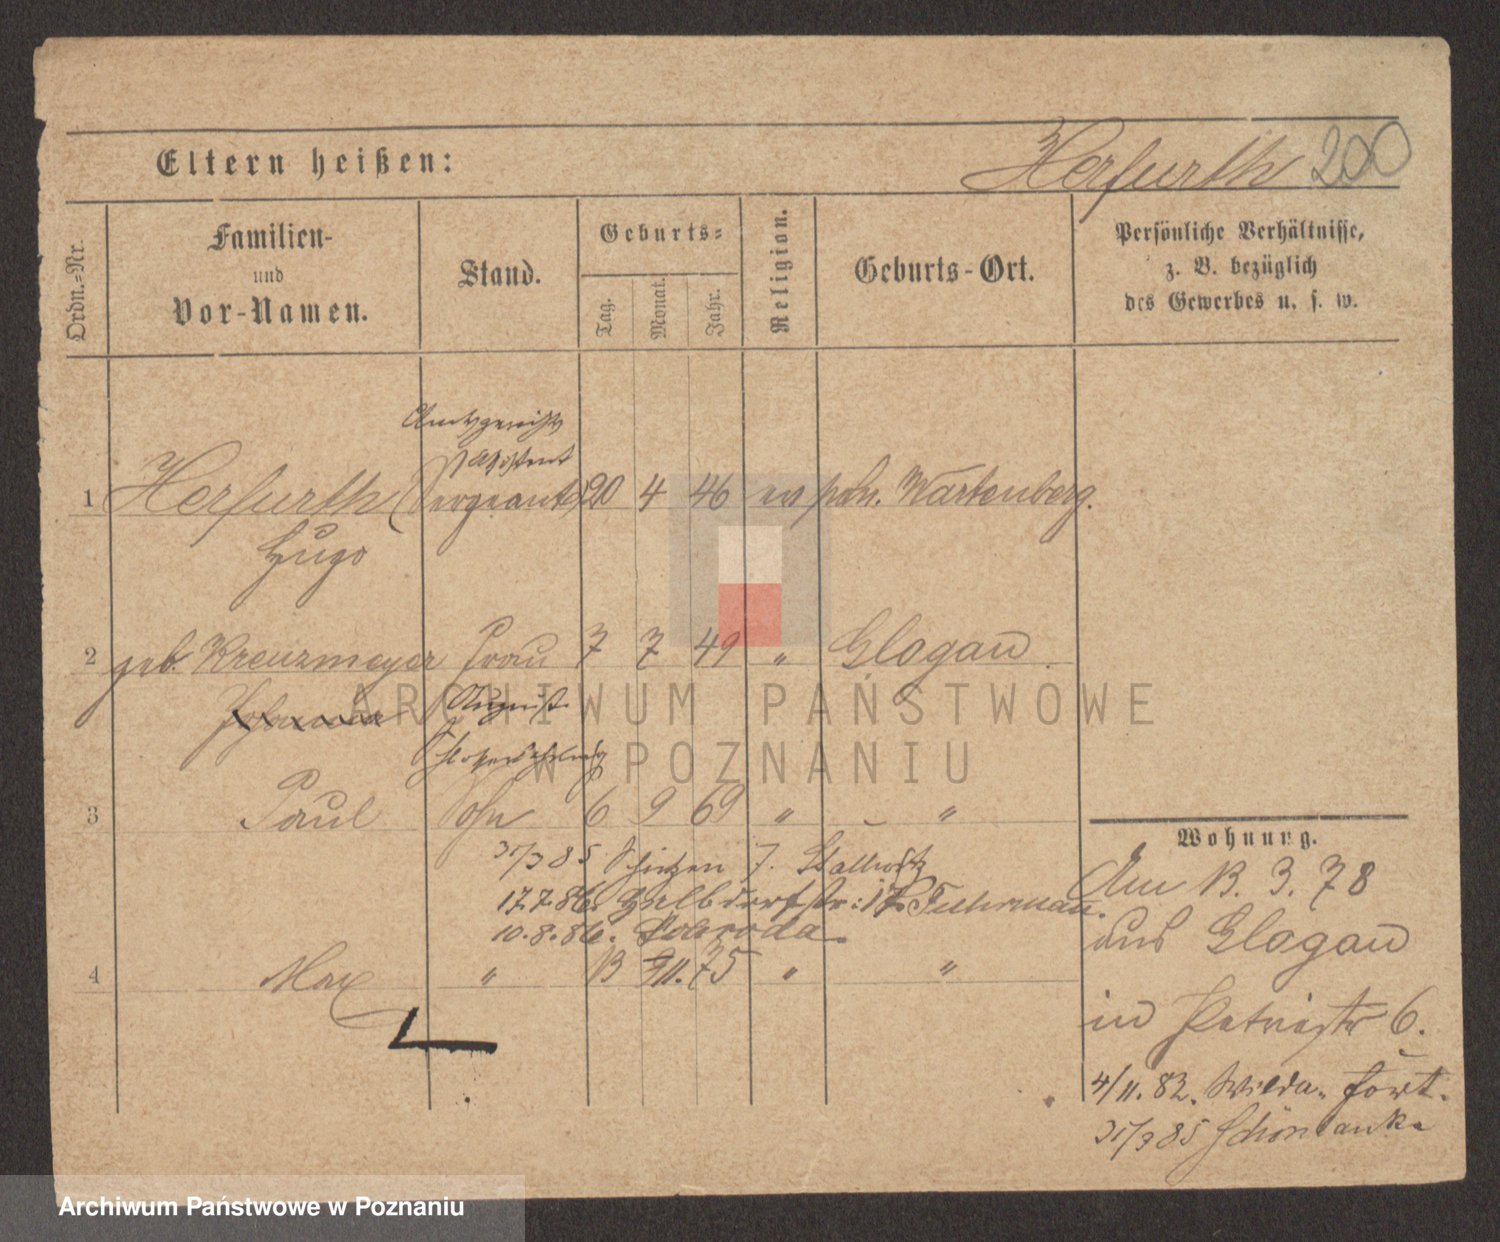 Eltern heißen:
Herfurth 200
Ordn.-Nr.
Familien-
und
Vor-Namen.
Stand.
Geburts-
Tag.
Monat.
Jahr.
Religion.
Geburts-Ort.
Persönliche Verhältnisse,
z. B. bezüglich
des Gewerbes u. s. w.
Amtsgerichts
Assistent
1 Herfurth (Sergeant) 20 4 46 ev poln. Wartenberg.
Hugo
2 geb. Kreuzmeyer Frau 7 7 49 " Glogau
August
3 Paul Sohn 6 9 69 " "
31/3 85
17.7.86. 17. Fuhrmann.
10.8.86. Pokroda
4 Max " 13 11. 75 " "
Wohnung.
Am 13. 3. 78
aus Glogau
in Petristr 6.
4/11. 82. Wilda. fort.
31/3 85 Schönlanke
ARCHIWUM PAŃSTWOWE
W POZNANIU
Archiwum Państwowe w Poznaniu